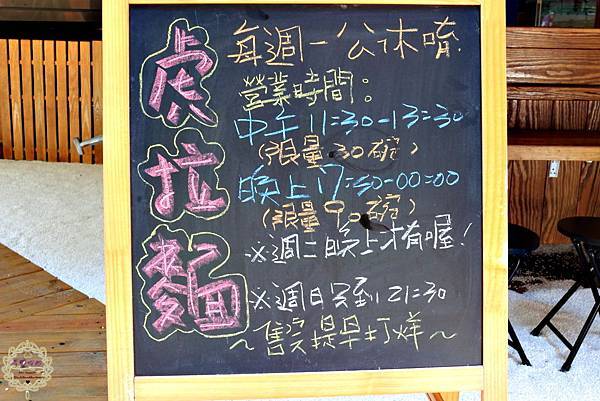 虎拉麵
每週一公休唷!
營業時間:
中午 11:30-13:30
(限量 30 碗)
晚上 17:30-00:00
(限量 90 碗)
※週二晚上才有喔!
※週日只到 21:30
~售完提早打烊~